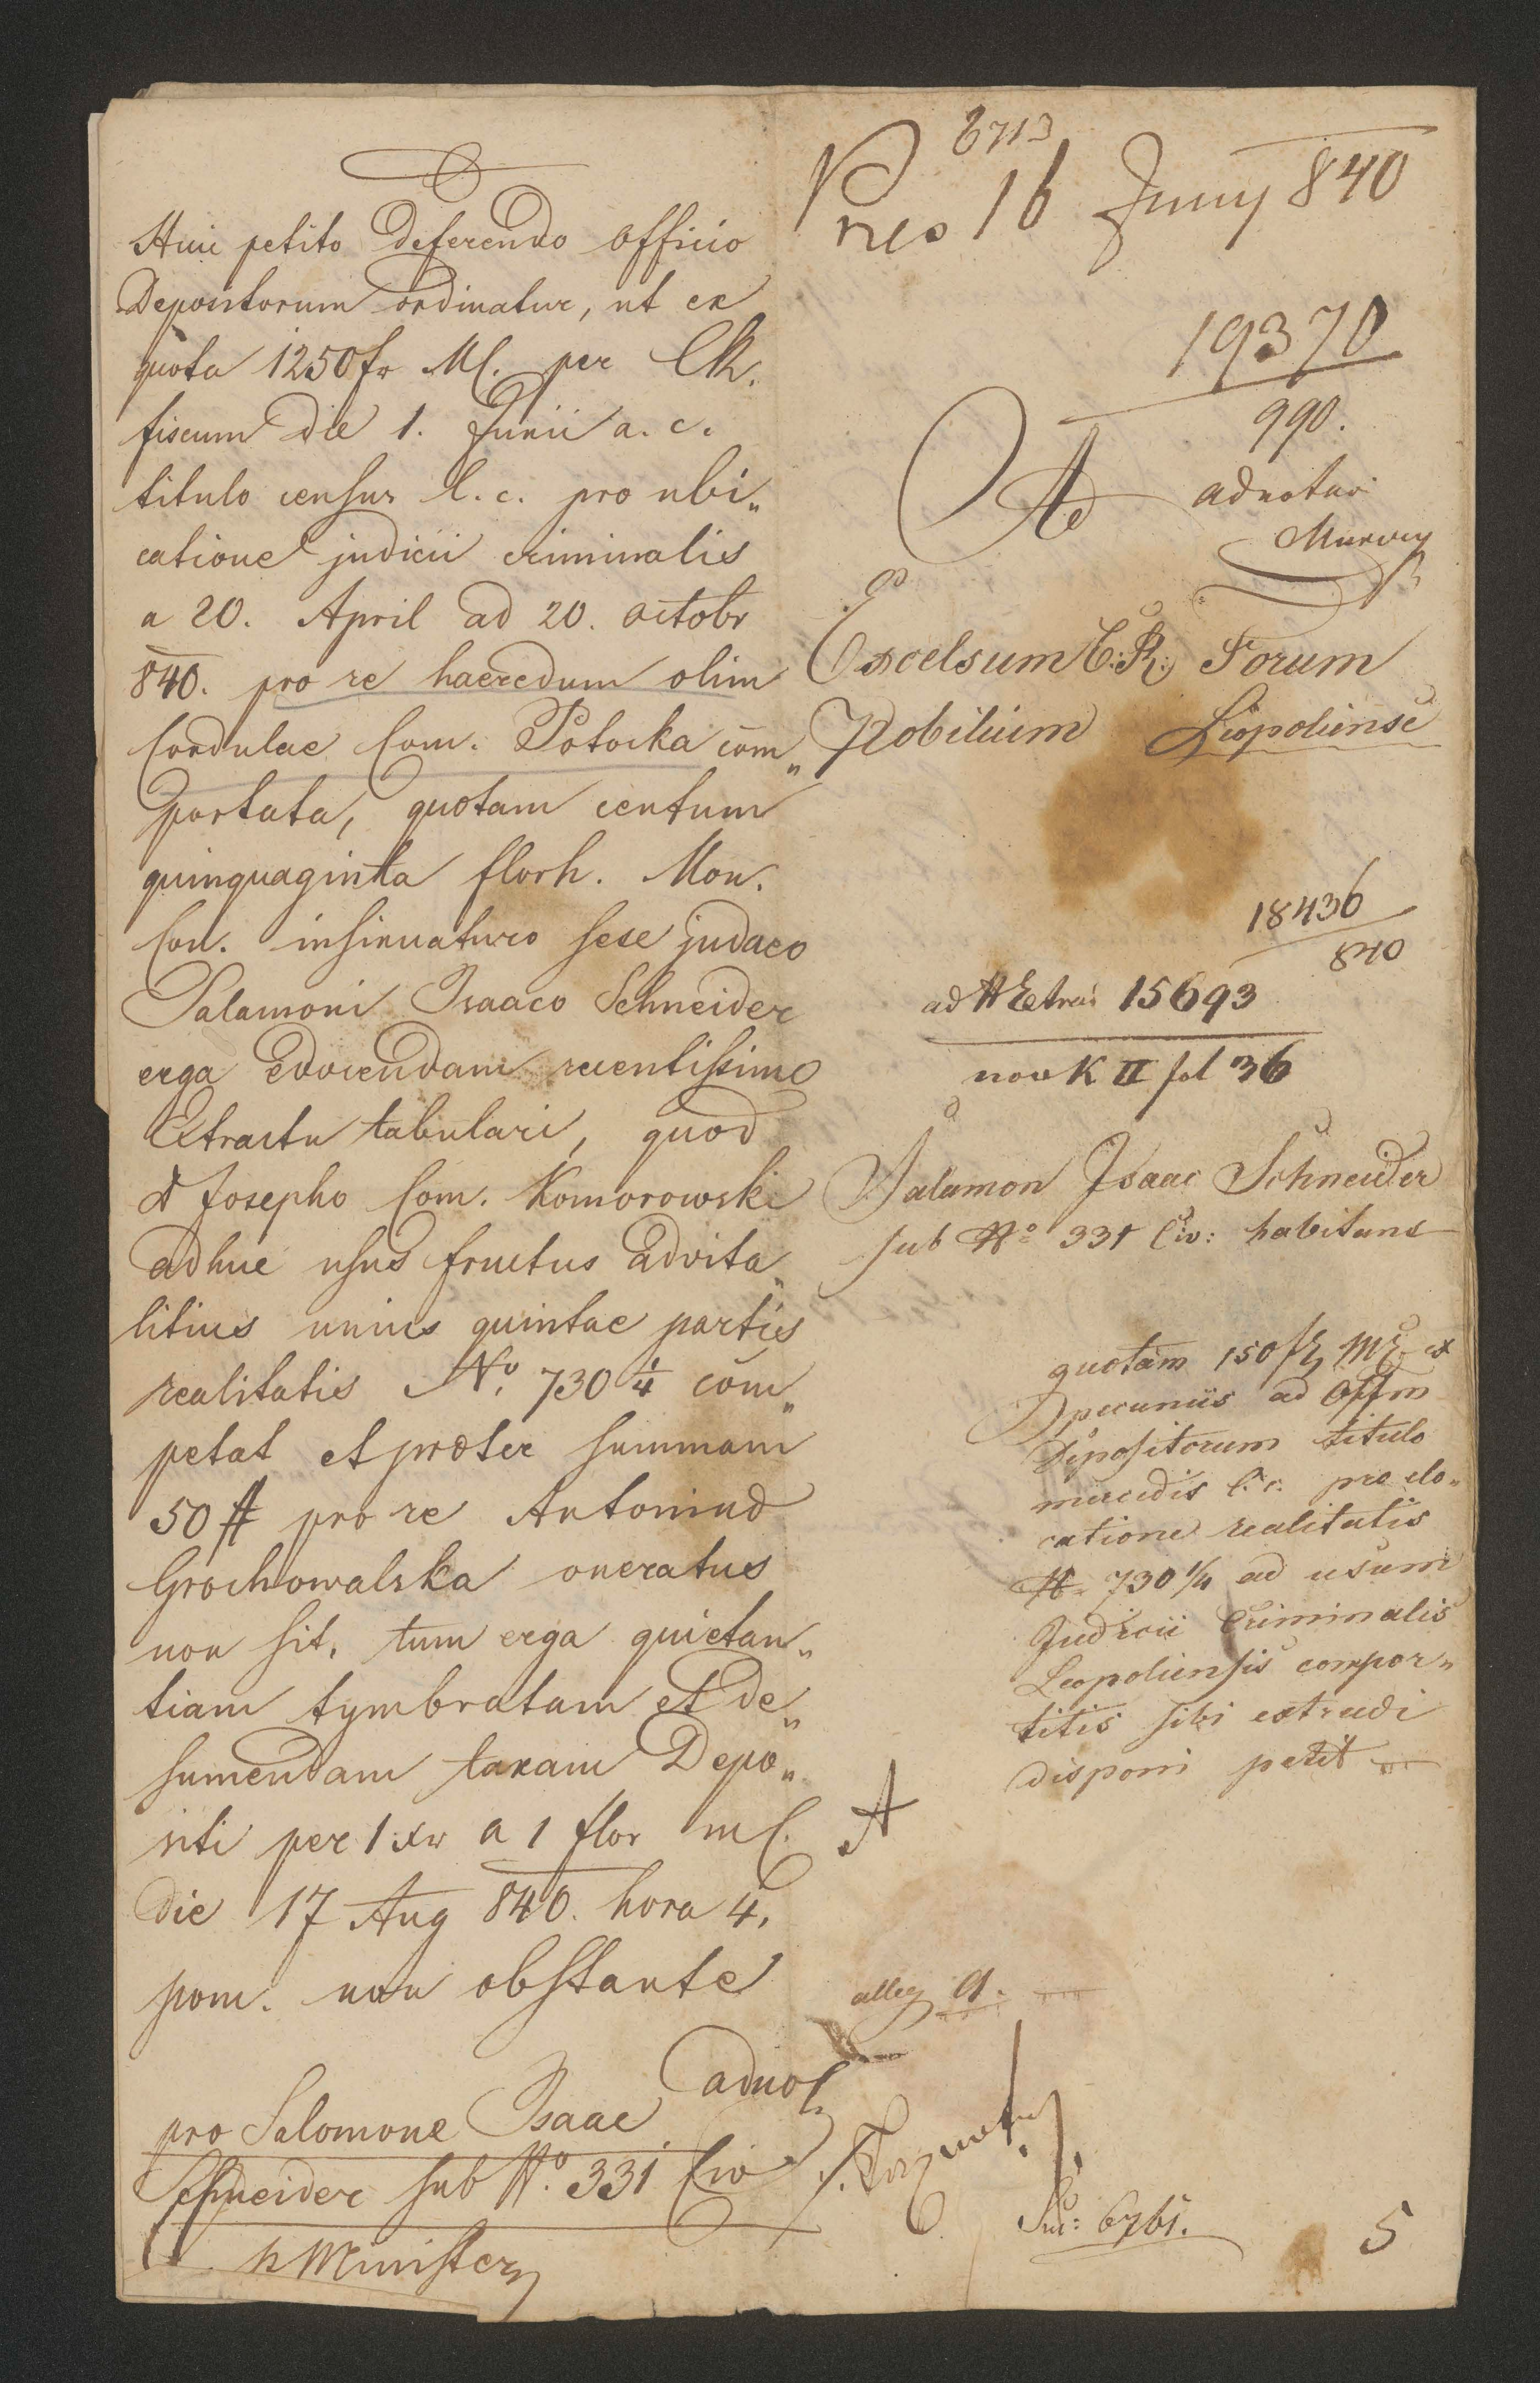 Huic petito deferendo officio
Depositorum ordinatur, ut ex
quota 1250 fr MC. per CR.
fiscum die 1. Junii a. c.
titulo census l. c. pro ubi„
catione judicii criminalis
a 20. April ad 20. octobr
840. pro re haeredum olim
Cordulae Com. Potocka com„
portata, quotam centum
quinquaginta florh. Mon.
Con. insinuaturo sese judaeo
Salamoni Isaaco Schneider
erga edocendam recentissimo
Extractu tabulari, quod
Josepho Com. Komorowski
adhuc usus fructus advita„
litius unius quintae partis
realitatis No. 730 1/4 com„
petat et praeter summam
50 # pro re Antonind
Grochowalska oneratus
non sit, tum erga quietan„
tiam tymbratam et de„
sumendam taxam Depo„
siti per 1 xr a 1 flor mC.
die 17 Aug 840. hora 4.
pom. non obstante
adnot
pro Salomone Isaac
Schneider sub No. 331 Civ
h Minister
6713
Pres 16 Juny 840
19370
990.
Ad adnotar
Excelsum C:R: Forum
Nobilium Leopoliense
18436
840
ad Extrai 15693
nov K II fol 36
Salamon Isaac Schneider
sub No 331 Civ: habitans
quotam 150 fr MC ex
pecuniis ad Offm
Depositorum titulo
mercedis l. c. pro elo„
catione realitatis
N 730 1/4 ad usum
Judicii Criminalis
Leopoliensis compor„
titis sibi extradi
disponi petit
A
alleg A.
6761.
5